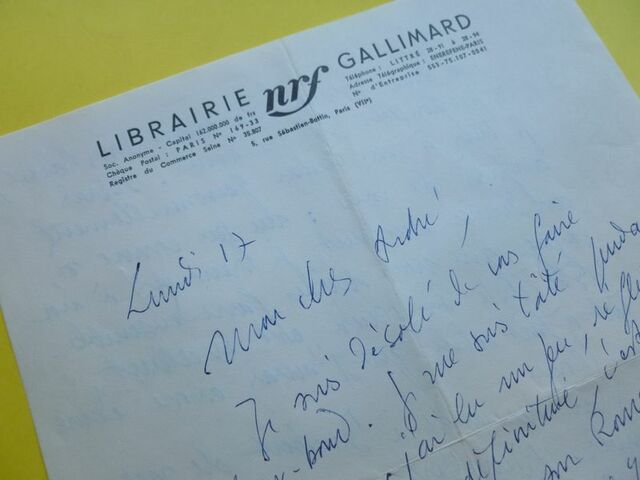 LIBRAIRIE nrf GALLIMARD
Soc. Anonyme - Capital 162.000.000 de frs
Chèque Postal : PARIS N° 169-33
Registre du Commerce Seine N° 35.807
Téléphone : LITTRÉ 28-91 à 28-94
Adresse Télégraphique : ENEREFENE-PARIS
N° d'Entreprise 555-75.107-0541
5, rue Sébastien-Bottin, Paris (VIIe)
Lundi 17
Mon cher André,
Je suis désolé de vous faire
bond. Je me suis tâté
j'ai lu un peu,
définitive, c'est